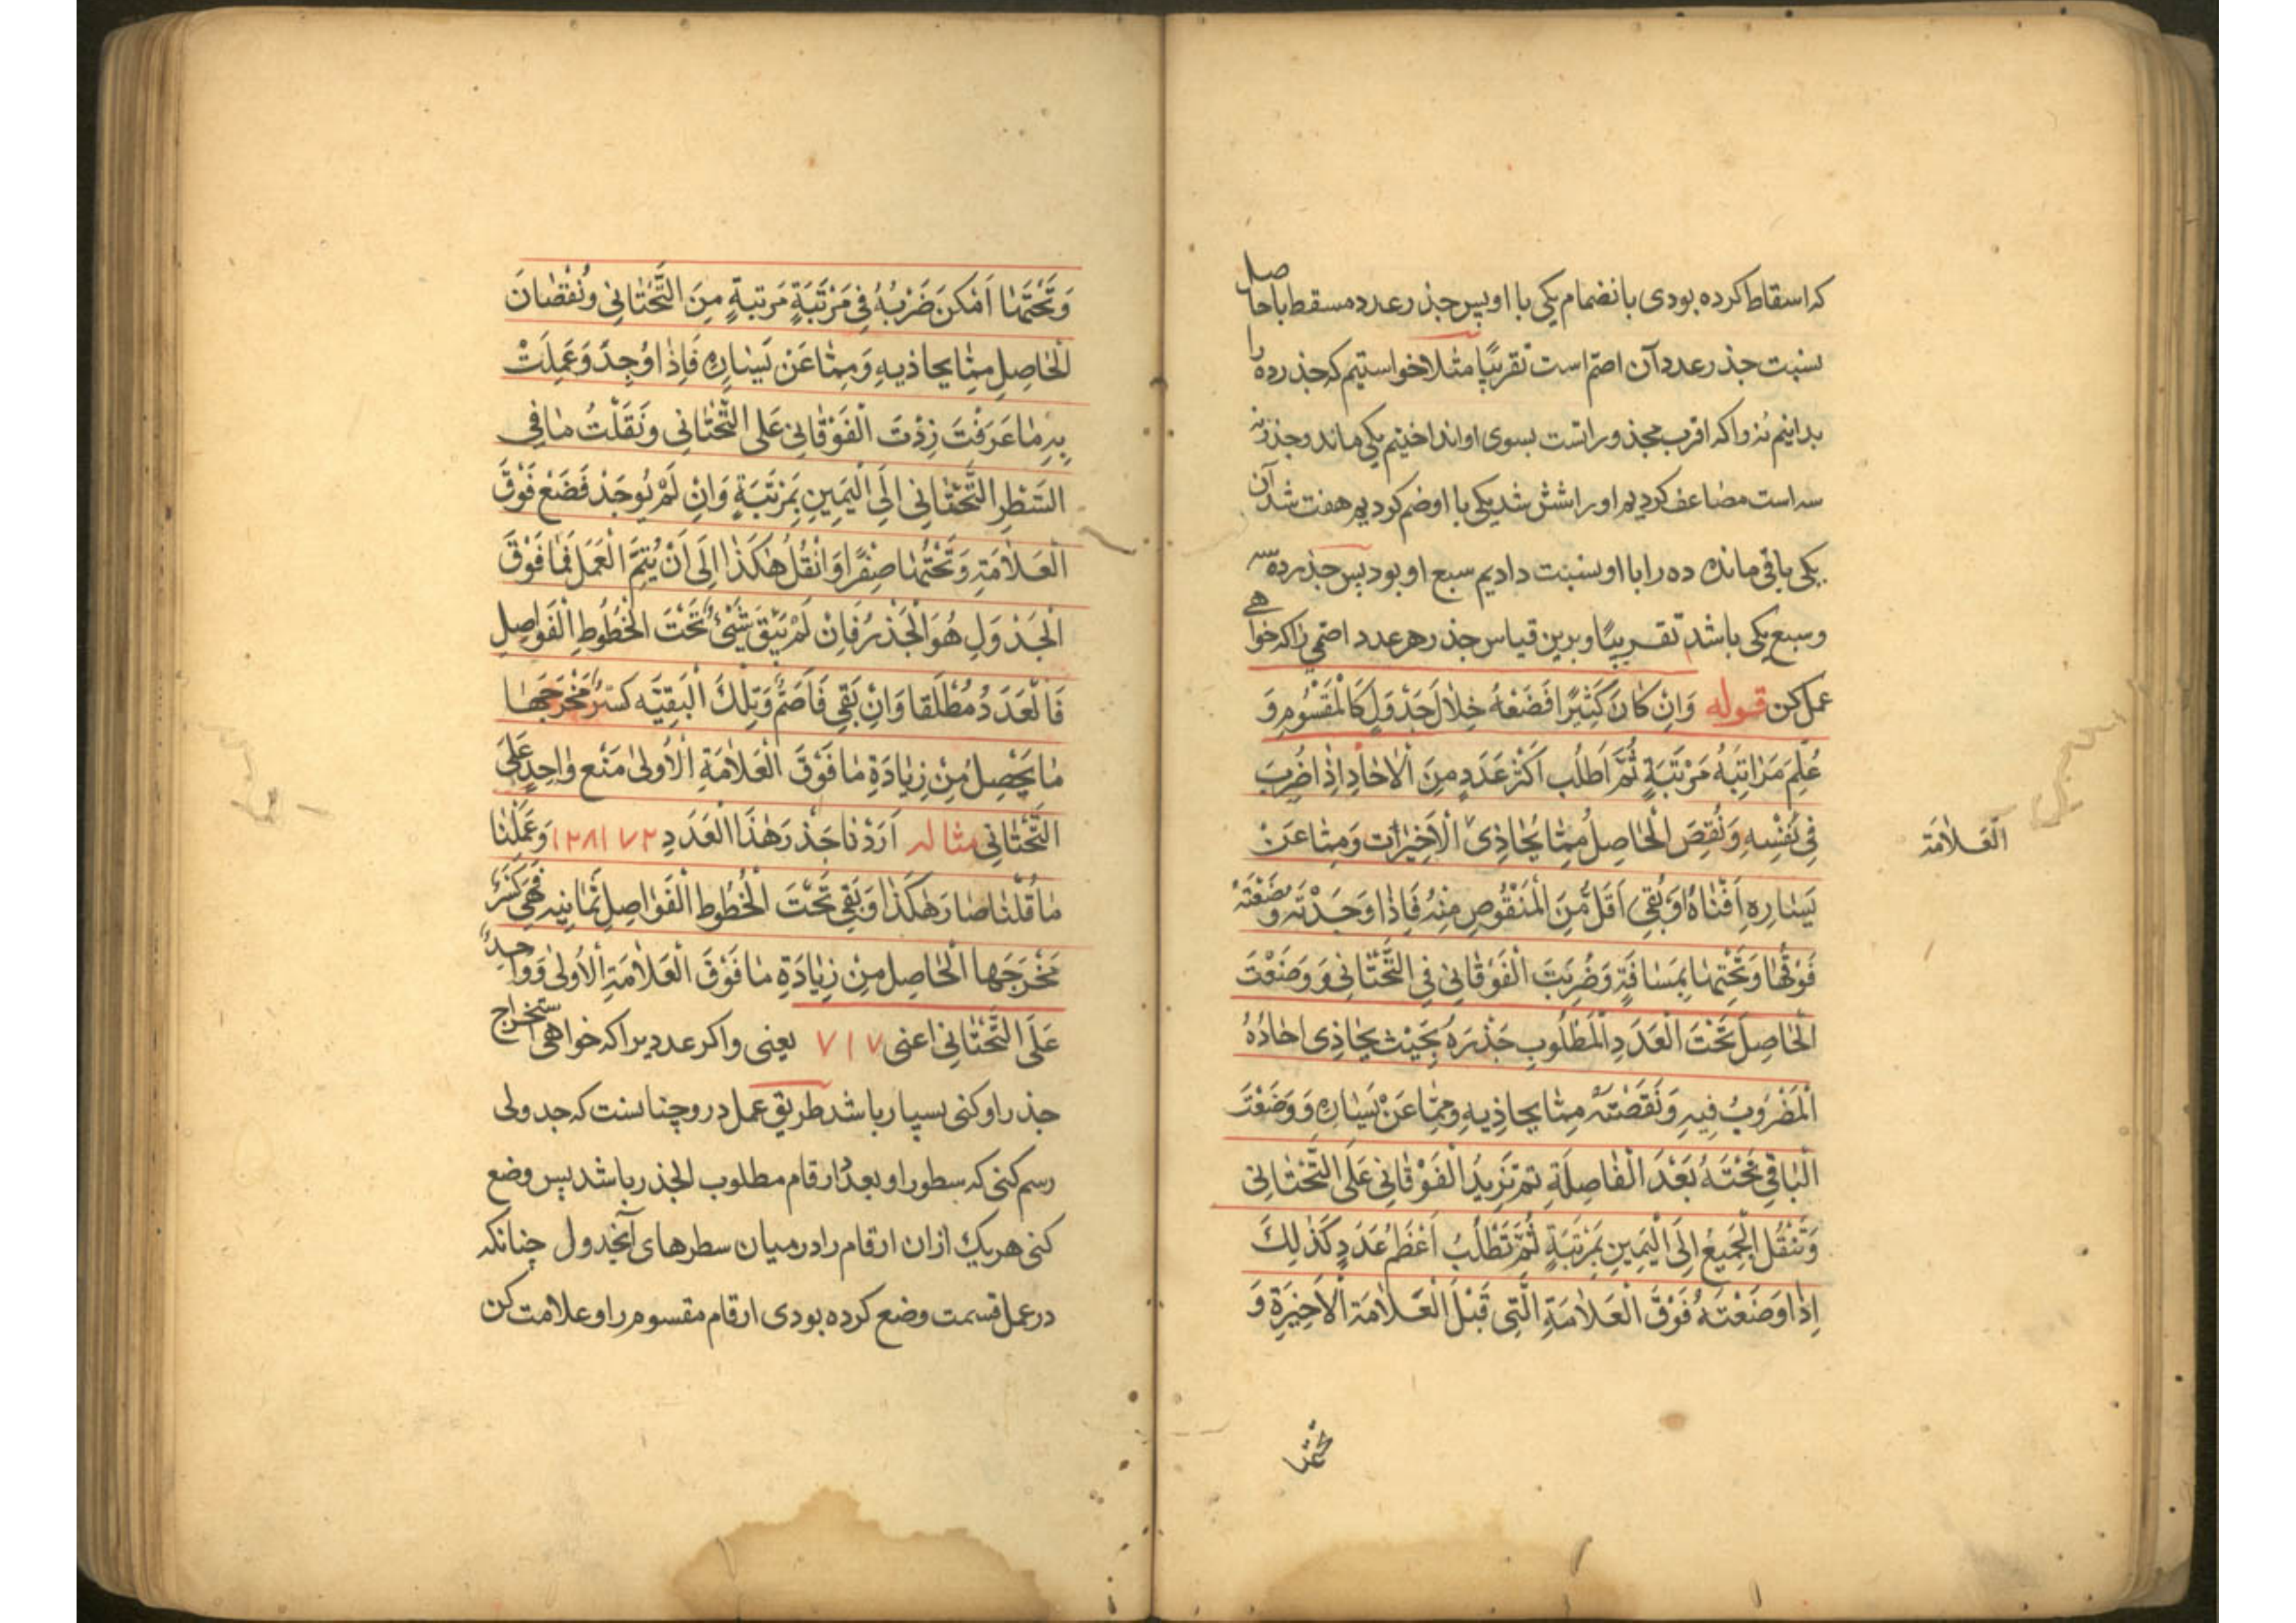 که اسقاط کرده بودی بانضمام یکی با او پس جذر عدد مسقط با حاصل
نسبت جذر عدد آن اصمّ است تقریبًا مثلا خواستیم که جذر ده را
بدانیم نه را که اقرب مجذورانست بسوی او انداختیم یکی ماند و جذر نه
سه است مضاعف کردیم او را شش شد یکی با او ضم کردیم هفت شد آن
یکی باقی مانده ده را با او نسبت دادیم سبع او بود پس جذر ده سه
و سبع یکی باشد تقریبًا و برین قیاس جذر هر عدد اصمی را که خواهی
عمل کن قوله وَاِنْ كَانَ كَثِيْرًا فَضَعْهُ خِلَالَ جَدْوَلٍ كَالْمَقْسُوْمِ وَ
عُلِّمَ مَرَاتِبَهُ مَرْتَبَةٍ ثُمَّ اَطْلُب اَكْثَرَ عَدَدٍ مِنَ الْاٰحَادِ اِذَا ضُرِبَ
فِي نَفْسِهِ وَنُقِصَ الْحَاصِلُ مِمَّا يُحَاذِىْ الْاَخِيْرَات وَمِمَّا عَنْ
الْعَلَامَة
يَسَارِهِ اَفْنَاهُ اَوْ بَقِيَ اَقَلُّ مِنَ الْمَنْقُوْصِ مِنْهُ فَاِذَا وَجَدْتَهُ وَضَعْتَهُ
فَوْقَهَا وَتَحْتِهَا بِمَسَافَةٍ وَضُرِبَتَ الْفَوْقَانِىْ فِى التَّحْتَانِى وَ وَضَعْتَ
الْحَاصِلَ تَحْتَ الْعَدَدِ الْمَطْلُوبِ جَذْرَهُ بِحَيْثُ يُحَاذِى اٰحَادُهُ
الْمَضْرُوْبُ فِيهِ وَنَقَصْتَهُ مِمَّا يحاذِيهِ وَمِمَّا عَنْ يَسَارِهِ وَ وَضَعْتَ
الْبَاقِيَ تَحْتَهُ بَعْدَ الْفَاصِلَةِ ثم تَزِيدُ الْفَوْقَانِىْ عَلَى التَّحْتَانِى
وَتَنْقُلُ الْجَمِيْعُ اِلَى الْيَمِيْنِ بِمَرْتَبَةٍ ثُمَّ تَطْلُبُ اَعْظَمَ عَدَدٍ كَذٰلِكَ
اِذَا وَضَعْتَهُ فَوْقَ الْعَلَامَةِ الَّتِى قَبْلَ الْعَلَامَةِ الْاَخِيْرَةِ وَ
تحتها
وَتَحْتَهَا اَمْكَنَ ضَرْبُهُ فِىْ مَرْتَبَةٍ مَرتبةٍ مِنَ التَّحْتَانِىْ وَنُقْصَانَ
الْحَاصِلِ مِمَّا يحاذيهِ وَمِمَّا عَنْ يَسَارِهِ فَاِذَا وُجِدَ وَعَمِلَتْ
بِهِ مَا عَرَفْتَ زِدْتَ الْفَوْقَانِىْ عَلَى التَّحْتَانِى وَنَقَلْتُ مَا فِى
السَّطْرِ التَّحْتَانِى اِلَى الْيَمِيْنِ بِمَرْتَبَةٍ وَاِنْ لَمْ يُوجَدْ فَضَعْ فَوْقَ
الْعَلَامَةِ وَتَحْتَهَا صِفْرًا وَانْقُلْ هٰكَذَا اِلَى اَنْ يُتِمَّ الْعَمَلَ فَمَا فَوْقَ
الْجَدْوَلِ هُوَ الْجَذْرُ فَاِنْ لَمْ يَبْقَ شَيْءٌ تَحْتَ الْخُطُوطِ الْفَوَاصِلِ
فَالْعَدَدُ مُطْلَقا وَاِنْ بَقِيَ فَاَصَمُّ وَتِلْكَ الْبَقِيَّه كَسْرٌ مَخْرَجَهَا
مَا يَحْصِلُ مِنْ زِيَادَةِ مَا فَوْقَ الْعَلَامَةِ الْاُولٰى مَنْع وَاحِدٍ عَلَى
التَّحْتَانِى مثاله اَرَدْنَا جَذْرَ هٰذَا الْعَدَدِ ١٢٨١٧٢ وَعَمِلْنَا
مَا قُلْنَا صَارَ هٰكَذَا وَبَقِيَ تَحْتَ الْخُطُوطِ الْفَوَاصِلِ ثَمَانِيه فَهِيَ كَسْرٌ
مَخْرَجَهَا الْحَاصِلِ مِنْ زِيَادَةِ مَا فَوْقَ الْعَلَامَةِ الْاُولٰى وَوَاحِدٌ
عَلَى التَّحْتَانِىْ اعنى ٧١٧ یعنی و اگر عددیرا که خواهی استخراج
جذر او کنی بسیار باشد طریق عمل در و چنانست که جدولی
رسم کنی که سطور او بعدد ارقام مطلوب الجذر باشد پس وضع
کنی هر یک ازان ارقام را در میان سطرهای آنجدول چنانکه
در عمل قسمت وضع کرده بودی ارقام مقسوم را و علامت کن